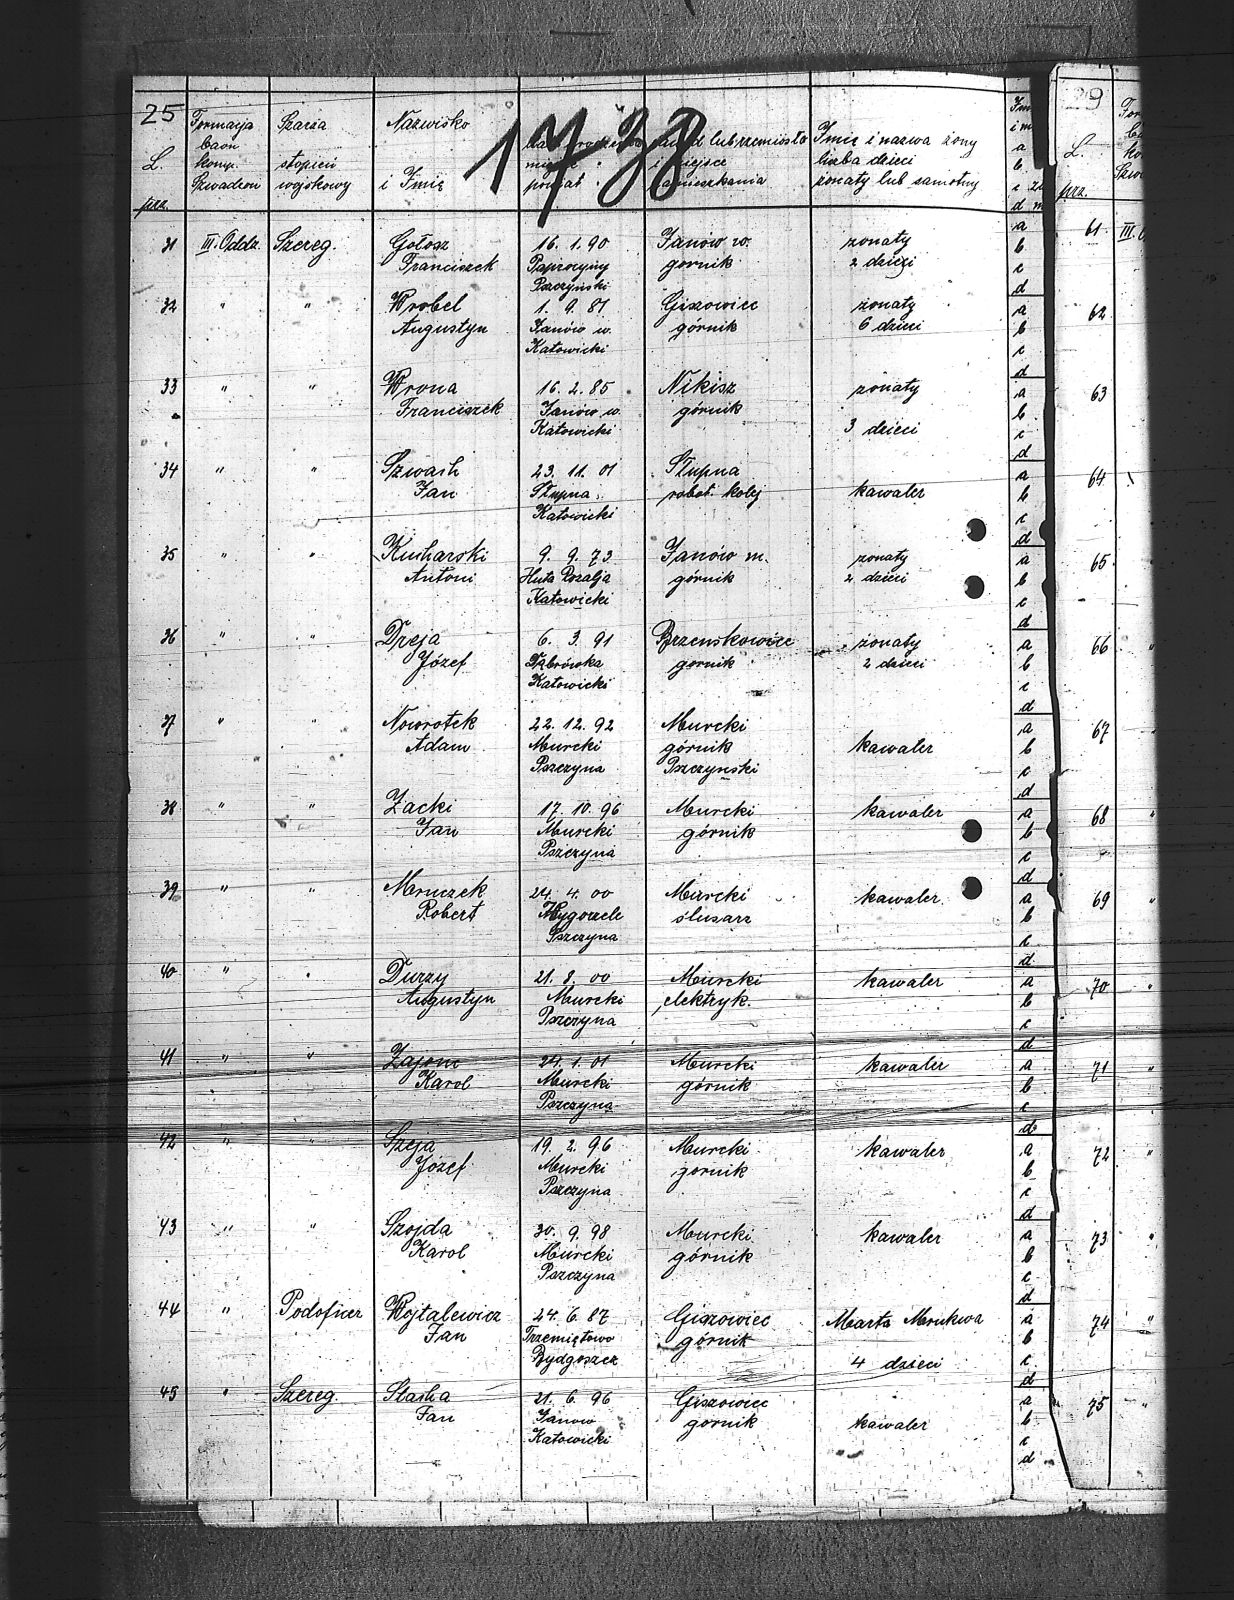 25
1738
Formacja
baon
komp.
Szwadron
L.
prz.
Szarża
stopień
wojskowy
Nazwisko
i Imię
lub rzemiosło
i miejsce
zamieszkania
Imię i nazwa żony
liczba dzieci
żonaty lub samotny
31 III. Oddz. Szereg. Gołosz 16. 1. 90 Janów w. żonaty
Franciszek Paprocyny gornik 2 dzieci
Pszczyński
32 " " Wrobel 1. 9. 81. Giszowiec żonaty
Augustyn Janów w. górnik 6 dzieci
Katowicki
33 " " Wrona 16. 2. 85 Nikisz żonaty
Franciszek Janów w. górnik
Katowicki 3 dzieci
34 " " Szwach 23. 11. 01 Słupna
Jan Słupna robot. kolej kawaler
Katowicki
35 " " Kucharski 9. 9. 73 Janów m. żonaty
Antoni Huta Rozalja górnik 2 dzieci
Katowicki
36 " " Dreja 6. 3. 91 Brzenskowiec żonaty
Józef Dąbrówka gornik 2 dzieci
Katowicki
37 " " Noworotek 22. 12. 92 Murcki
Adam Murcki górnik kawaler
Pszczyna Pszczyński
38 " " Zacki 17. 10. 96 Murcki kawaler
Jan Murcki górnik
Pszczyna
39 " " Mruczek 24. 4. 00 Murcki kawaler
Robert ślusarz
Pszczyna
40 " " Durzy 21. 8. 00 Murcki kawaler
Augustyn Murcki elektryk.
Pszczyna
41 " " Zajonc 24. 1. 01 Murcki kawaler
Karol Murcki górnik
Pszczyna
42 " " Szeja 19. 2. 96 Murcki kawaler
Józef Murcki gornik
Pszczyna
43 " " Szojda 30. 9. 98 Murcki kawaler
Karol Murcki górnik
Pszczyna
44 " Podoficer Wojtalewicz 24. 6. 87 Giszowiec Marta Mrukwa
Jan Trzemiętowo górnik
Bydgoszcz 4 dzieci
45 " Szereg. Stacha 21. 6. 96 Giszowiec
Jan Janow gornik kawaler
Katowicki
a
b
c
d
a
b
c
d
a
b
c
d
a
b
c
d
a
b
c
d
a
b
c
d
a
b
c
d
a
b
c
d
a
b
c
d
a
b
c
d
a
b
c
d
a
b
c
d
a
b
c
d
a
b
c
d
a
b
c
d
29
L.
prz.
61 III.
62
63
64
65
66 "
67 "
68 "
69 "
70 "
71 "
72 "
73 "
74 "
75 "